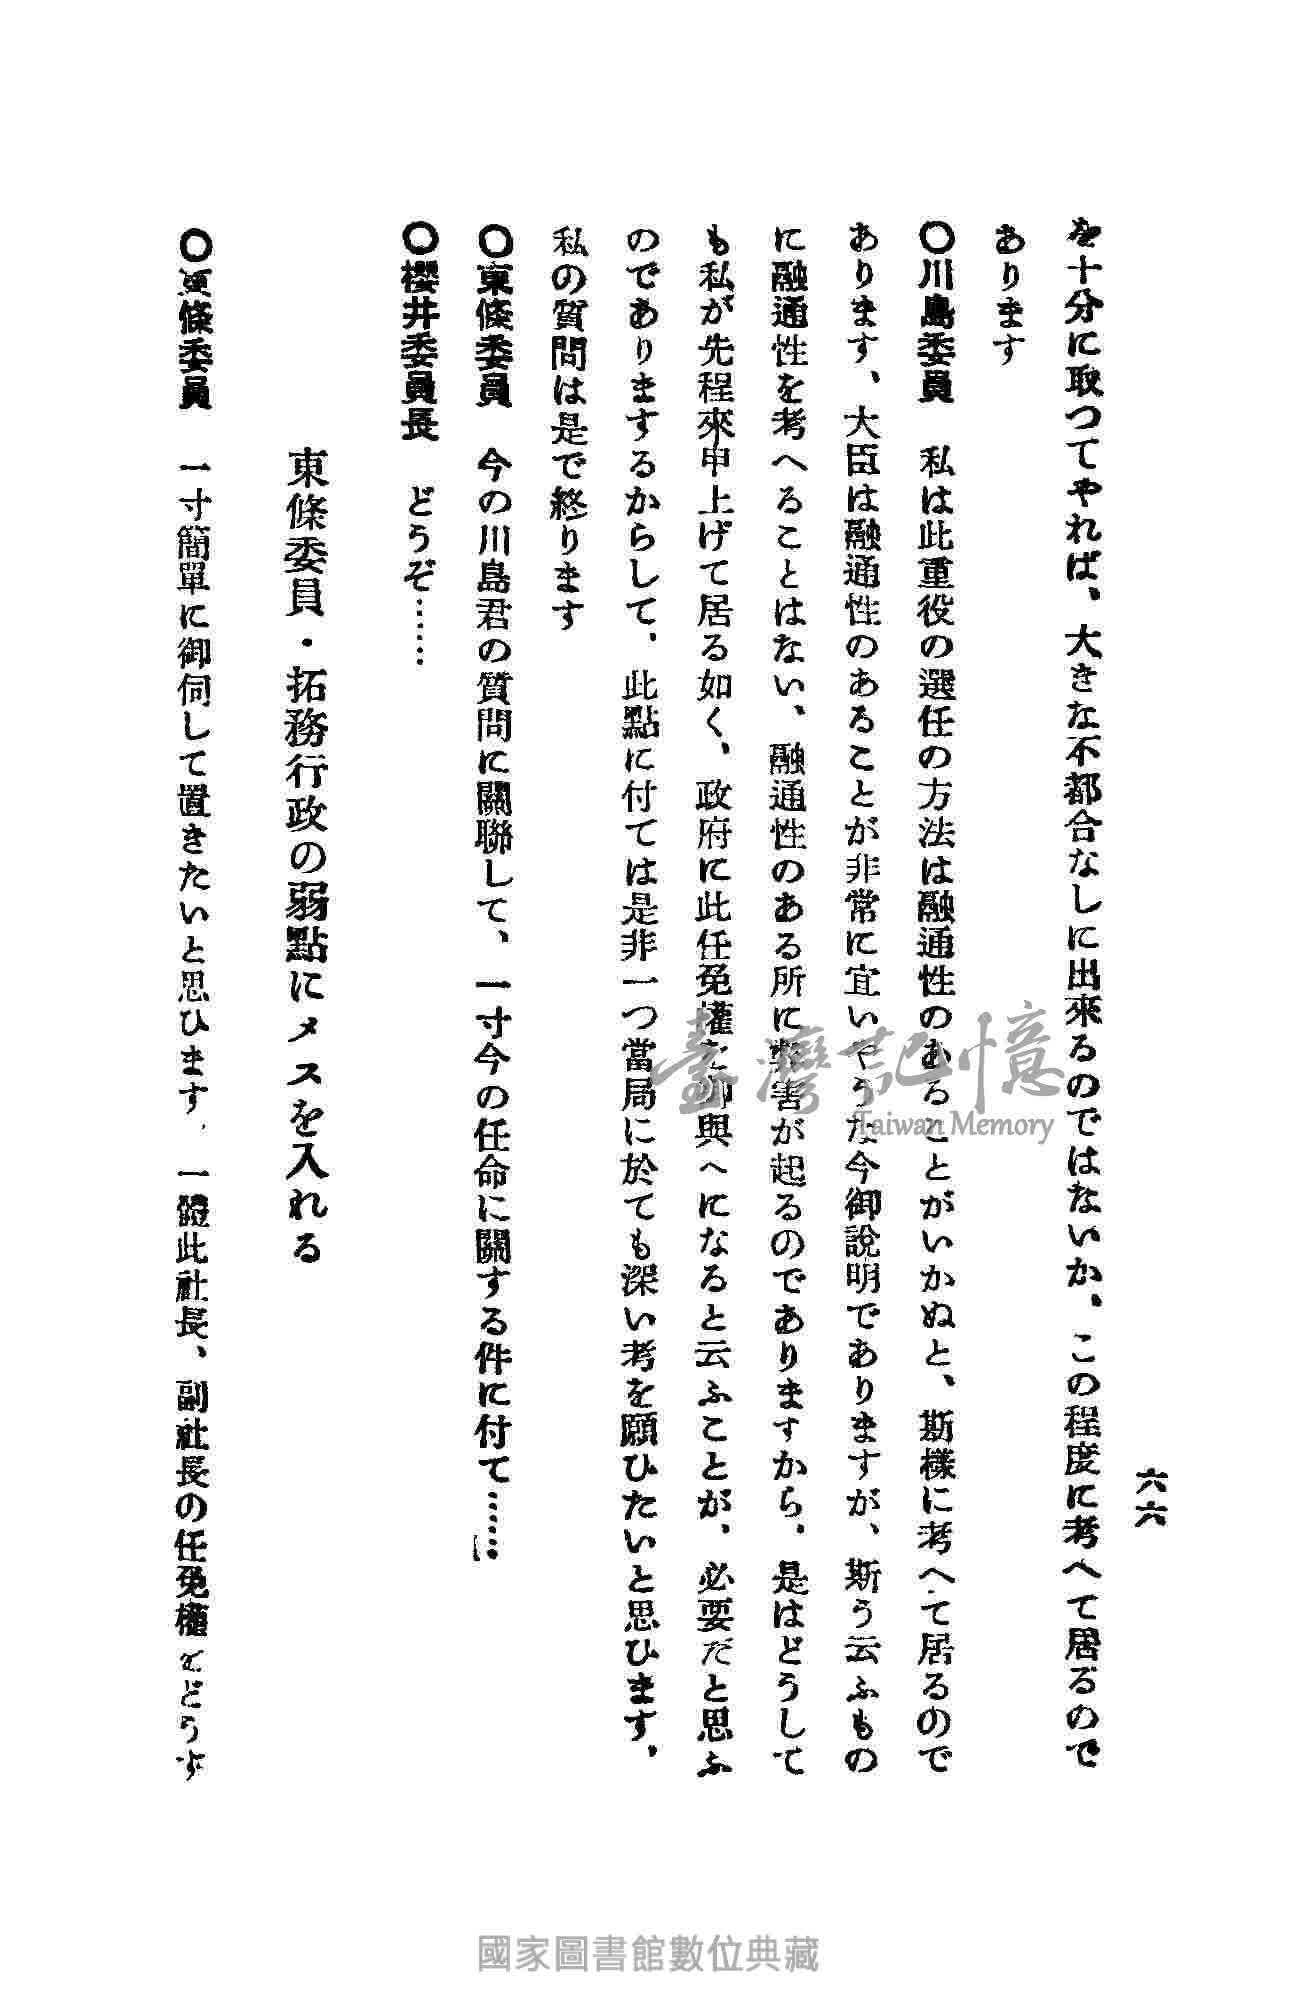 六六
を十分に取つてやれば、大きな不都合なしに出來るのではないか、この程度に考へて居るので
あります
〇川島委員　私は此重役の選任の方法は融通性のあることがいかぬと、斯様に考へて居るので
あります、大臣は融通性のあることが非常に宜いやうな今御說明でありますが、斯う云ふもの
に融通性を考へることはない、融通性のある所に弊害が起るのでありますから、是はどうして
も私が先程來申上げて居る如く、政府に此任免權を御與へになると云ふことが、必要だと思ふ
のでありまするからして、此點に付ては是非一つ當局に於ても深い考を願ひたいと思ひます、
私の質問は是で終ります
〇東條委員　今の川島君の質問に關聯して、一寸今の任命に關する件に付て……
〇櫻井委員長　どうぞ……
東條委員・拓務行政の弱點にメスを入れる
〇東條委員　一寸簡單に御伺して置きたいと思ひます、一體此社長、副社長の任免權をどうす
臺灣記憶
Taiwan Memory
國家圖書館數位典藏